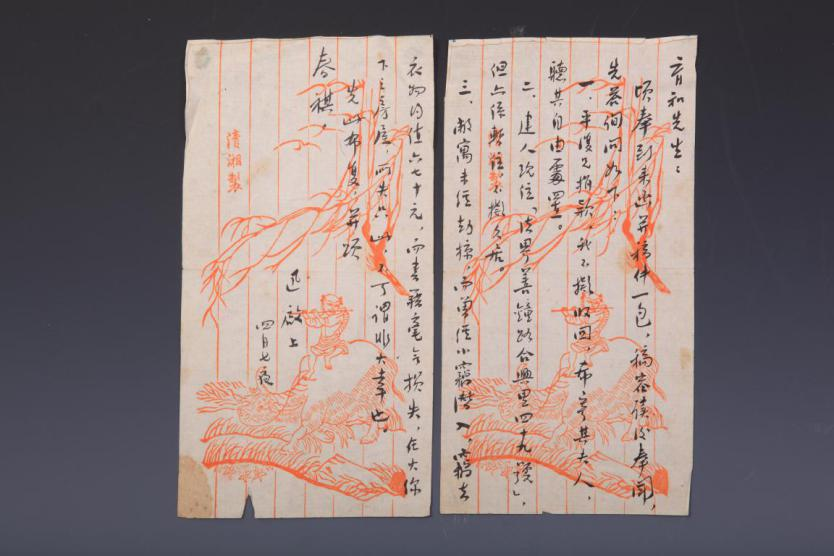 育和先生：
頃奉到來函并稿件一包，稿容讀後奉聞，
先答詢問如下：
一、平復兄捐款，我不擬收回，希寄其夫人，
聽其自由處置。
二、建人現住「法界善鐘路合興里四十九號」，
但亦係暫住，不擬久居。
三、敝寓未經劫掠，而曾經小竊潛入，竊去
衣物約值六七十元，而書籍毫無損失，在火線
下之房屋，所失只此，不可謂非大幸也。
先此布復，并頌
春祺。
迅啟上
四月七夜
清湘製